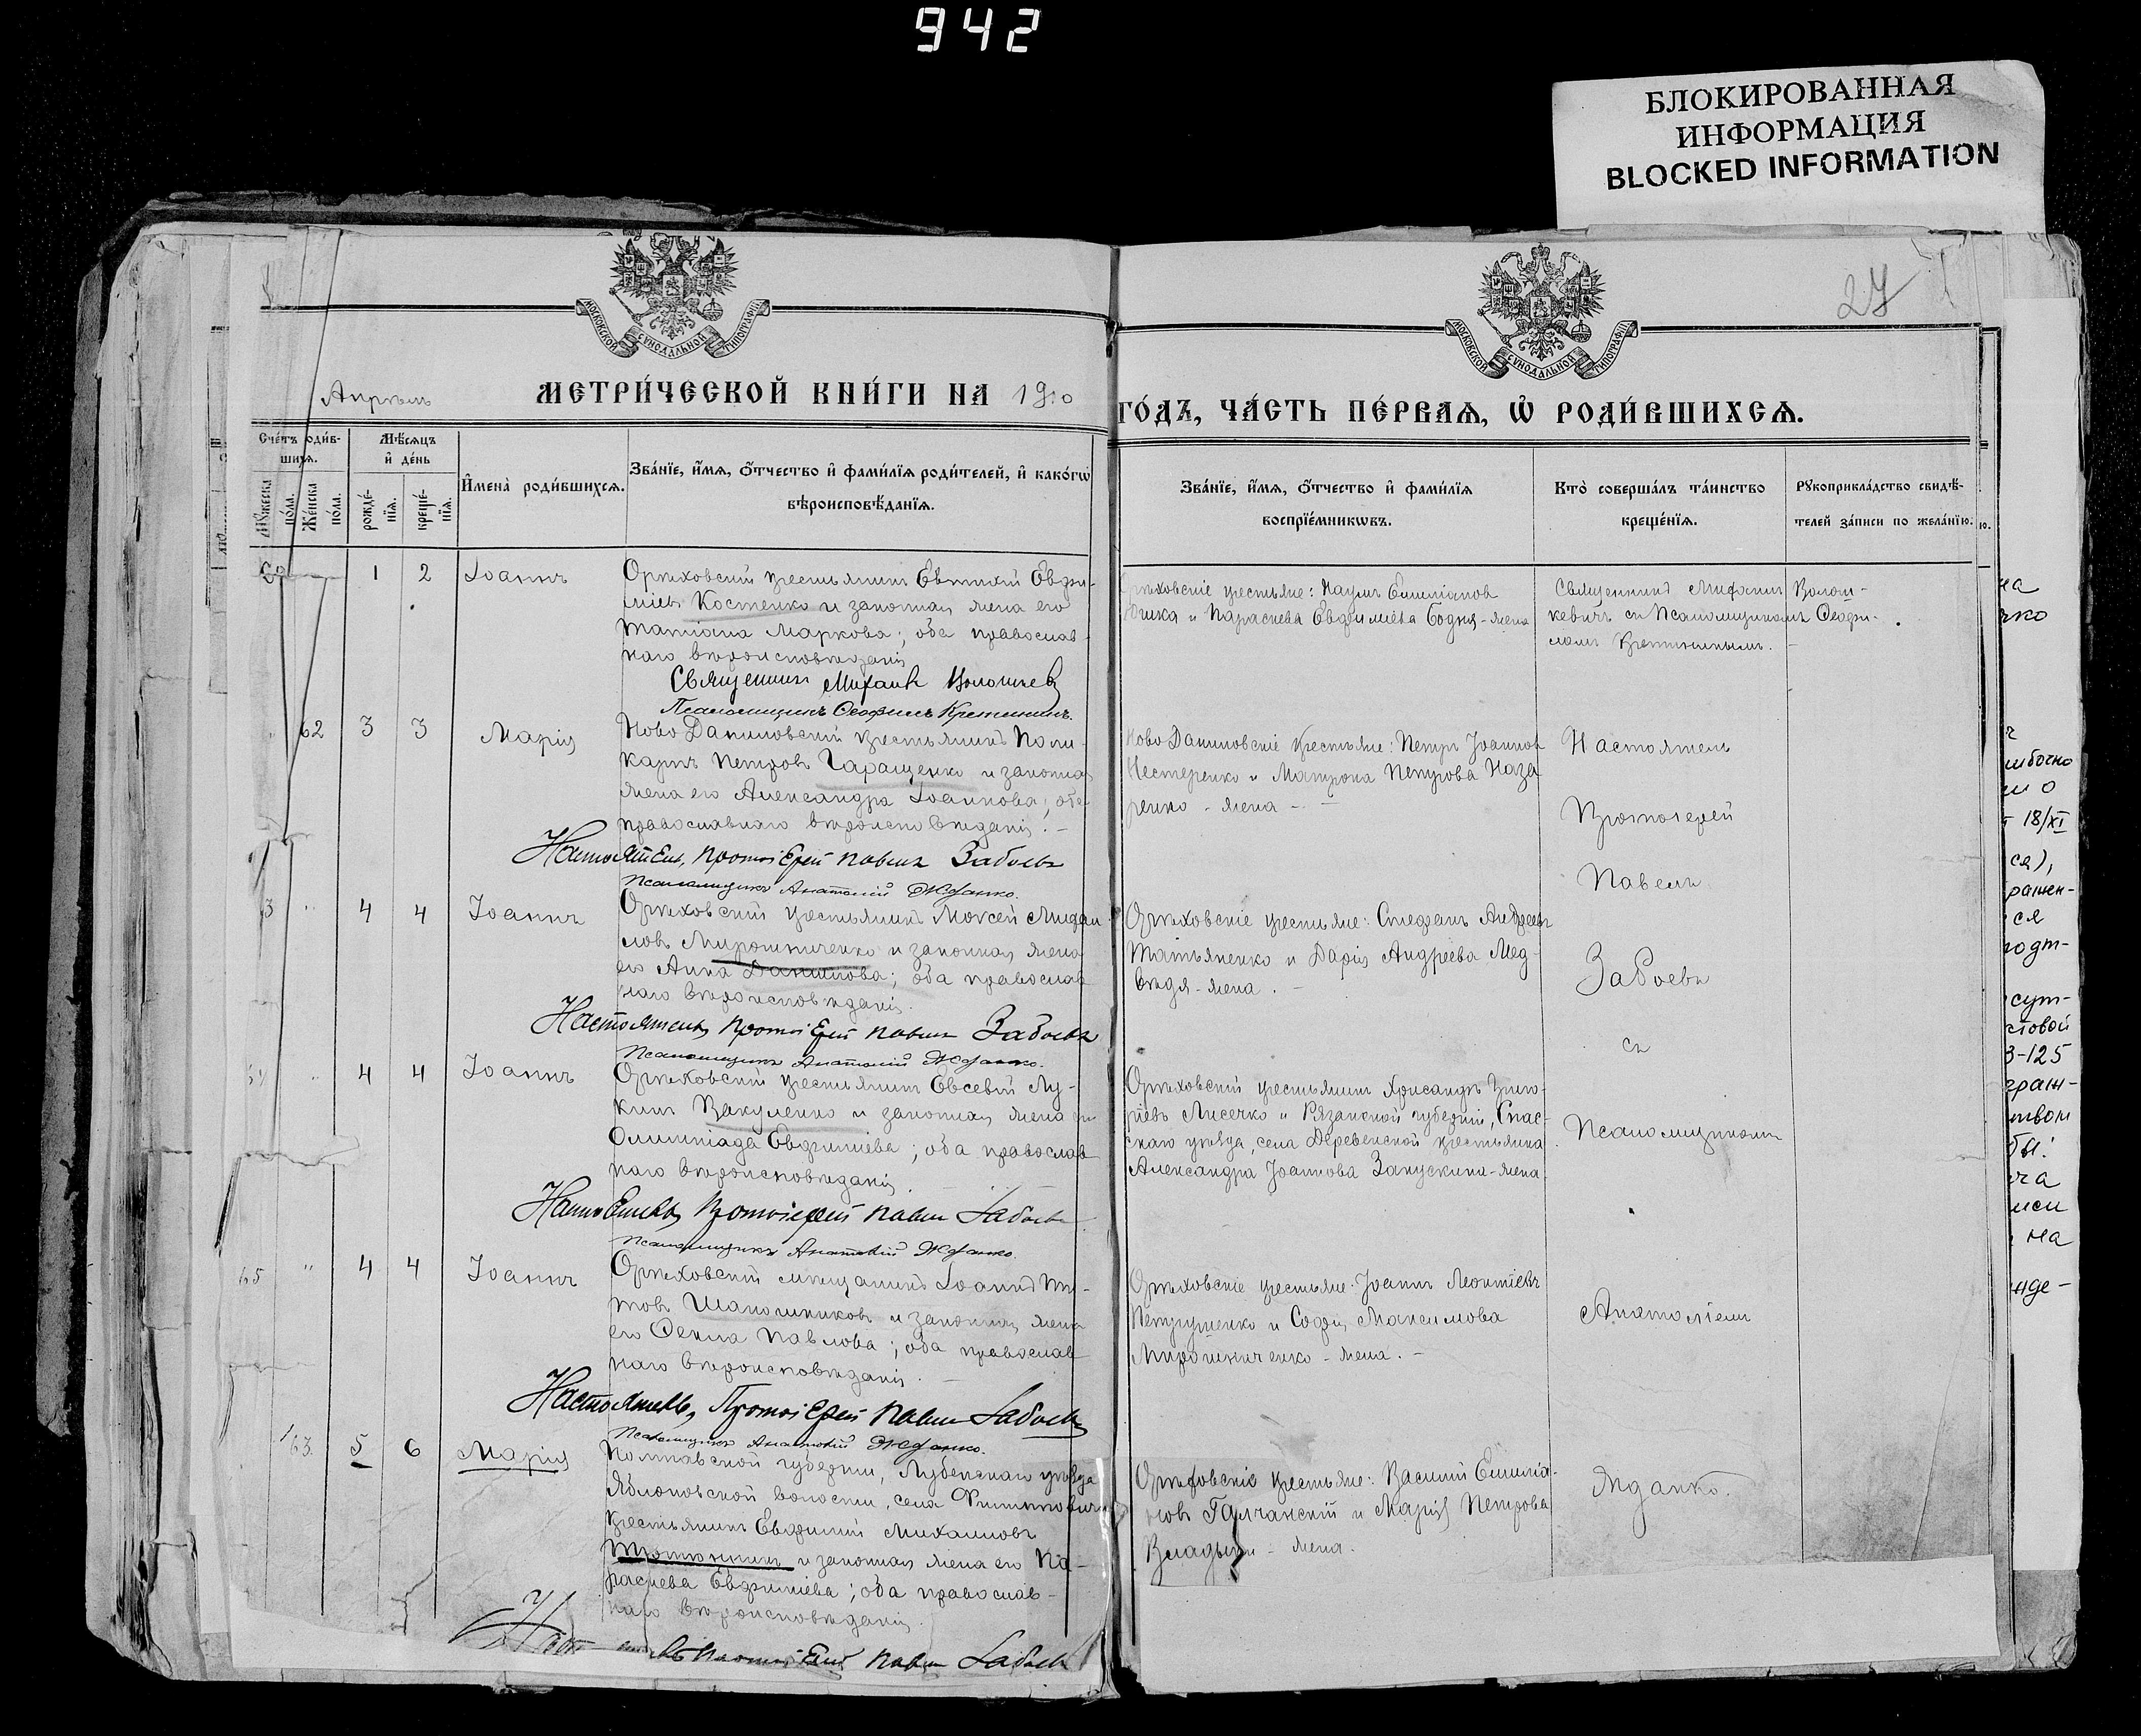 942
БЛОКИРОВАННАЯ
ИНФОРМАЦИЯ
BLOCKED INFORMATION
27
МОСКОВСКОЙ СѴНОДАЛЬНОЙ ТИПОГРАФІИ
МОСКОВСКОЙ СѴНОДАЛЬНОЙ ТИПОГРАФІИ
Апрѣль
МЕТРИ́ЧЕСКОЙ КНИ́ГИ НА 1910
ГО́ДЪ, ЧА́СТЬ ПЕ́РВАѦ, Ѡ РОДИ́ВШИХСѦ.
Сче́тъ роди́в-
шихсѧ.
Мꙋ́жеска по́ла.
Же́нска по́ла.
Мѣ́сѧцъ
и҆ де́нь
рожде́-
нїѧ.
креще́-
нїѧ.
И҆мена̀ роди́вшихсѧ.
Зва́нїе, и҆́мѧ, ѻ҆́тчество и҆ фами́лїѧ роди́телей, и҆ како́гѡ
вѣроисповѣ́данїѧ.
Зва́нїе, и҆́мѧ, ѻ҆́тчество и҆ фами́лїѧ
воспрїе́мникѡвъ.
Кто̀ соверша́лъ та́инство
креще́нїѧ.
Рꙋкоприкла́дство свидѣ́-
телей за́писи по жела́нїю.
1 2 Іоаннъ
Орѣховскій крестьянинъ Евтихій Евфи-
міевъ Костенко и законная жена его
Татіана Маркова; оба православ-
наго вѣроисповѣданія
Священникъ
Псаломщикъ Ѳеофилъ Кретининъ.
Орѣховскіе крестьяне: Наумъ Емиліановъ
и Параскева Евфиміева Бодня - жена
Священникъ
кевичъ съ Псаломщикомъ Ѳеофи-
ломъ Кретининымъ.
62 3 3 Марія
Ново Даниловскій крестьянинъ Поли-
карпъ Петровъ Гаращенко и законная
жена его Александра Іоаннова; оба
православнаго вѣроисповѣданія. -
Настоятель, Протоіерей Павелъ Забоевъ
Псаломщикъ Анатолій Жданко.
Ново Даниловскіе крестьяне: Петръ Іоанновъ
Нестеренко и Матрона Петрова Наза
ренко - жена - -
Настоятель
Протоіерей
Павелъ
3 " 4 4 Іоаннъ
Орѣховскій крестьянинъ Моѵсей Михаи
ловъ Мирошниченко и законная жена
его Анна Даніилова; оба православ
наго вѣроисповѣданія.
Настоятель, Протоіерей Павелъ Забоевъ
Псаломщикъ Анатолій Жданко.
Орѣховскіе крестьяне: Стефанъ Андреевъ
Татьяненко и Дарія Андреева Мед-
вѣдя - жена. -
Забоевъ
съ
" 4 4 Іоаннъ
Орѣховскій крестьянинъ Евсевій Лу-
кинъ Вакуленко и законная жена его
Олимпіада Евфиміева; оба православ
наго вѣроисповѣданія. -
Настоятель, Протоіерей Павелъ Забоевъ
Псаломщикъ Анатолій Жданко.
Орѣховскій крестьянинъ Хрисанфъ Григо-
ріевъ Лисечко и Рязанской губерніи, Спас-
скаго уѣзда, села Деревенской крестьянка
Александра Іоаннова Запускина - жена
Псаломщикомъ
65 " 4 4 Іоаннъ
Орѣховскій мѣщанинъ Іоаннъ Ти-
товъ Шапошниковъ и законная жена
его Ѳекла Павлова; оба православ
наго вѣроисповѣданія. -
Настоятель, Протоіерей Павелъ Забоевъ
Псаломщикъ Анатолій Жданко.
Орѣховскіе крестьяне: Іоаннъ Леонтіевъ
Петрушенко и Софія Максимова
Мирошниченко - жена. -
Анатоліемъ
63. 5 6 Марія
Полтавской губерніи, Лубенскаго уѣзда
Яблоновской волости, села
крестьянинъ Евфимій Михаиловъ
и законная жена его Па-
раскева Евфиміева; оба православ-
наго вѣроисповѣданія.
Протоіерей Павелъ Забоевъ
Орѣховскіе крестьяне: Василій Емиліа-
новъ Галчанскій и Марія Петрова
жена.
Жданко.
на
чко
шбочно
18/XI
ся),
ражен-
ся
подт-
сут-
стовой
3-125
граж-
ством
бы:
на
нде-